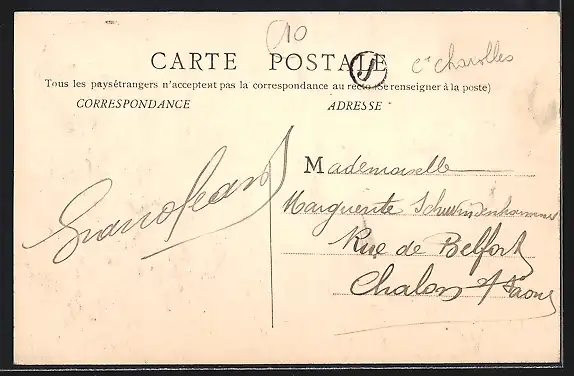 10
CARTE POSTALE
J
Ct charolles
Tous les pays étrangers n'acceptent pas la correspondance au recto (Se renseigner à la poste)
CORRESPONDANCE
ADRESSE
Mademoiselle
Marguerite
Rue de Belfort
Chalon s/ Saone